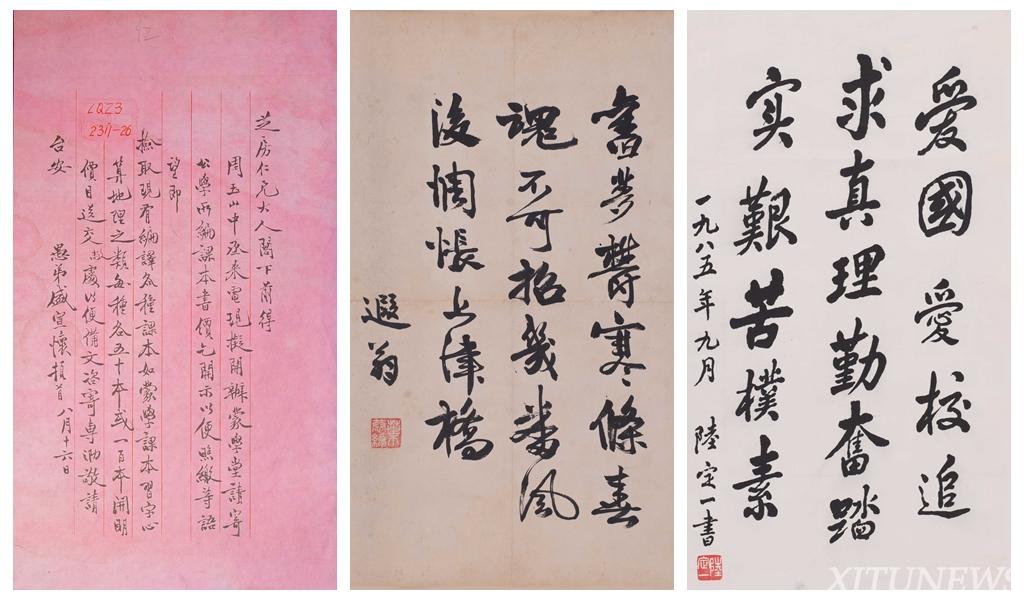 LQZ3
2311-26
芝房仁兄大人閣下前得
周玉山中丞來電現擬開辦蒙學堂請寄
公學所編課本書價乞開示以便照繳等語
望即
檢取現有編譯各種課本如蒙學課本習字心
算地理之類每種各五十本或一百本開明
價目送交敝處以便備文咨寄專泐敬請
台安
愚弟盛宣懷頓首 八月十六日
舊夢鬱寒條春
魂不可招幾番風
後惆悵上津橋
遐翁
爱國愛校追
求真理勤奮踏
实艱苦樸素
一九八五年九月 陸定一書
陸定一
XITUNEWS